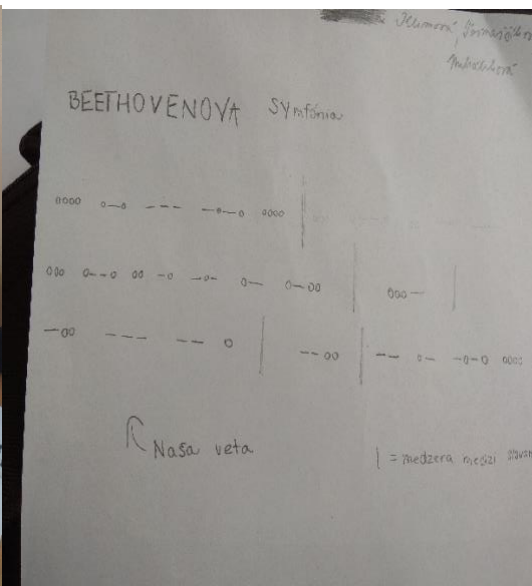 BEETHOVENOVA Symfónia
oooo o—o --- —o—o oooo |
ooo o--o oo -o -o- o— o—oo | ooo— |
—oo --- -- o | --oo | -- o- -o-o oooo
Naša veta
| = medzera medzi